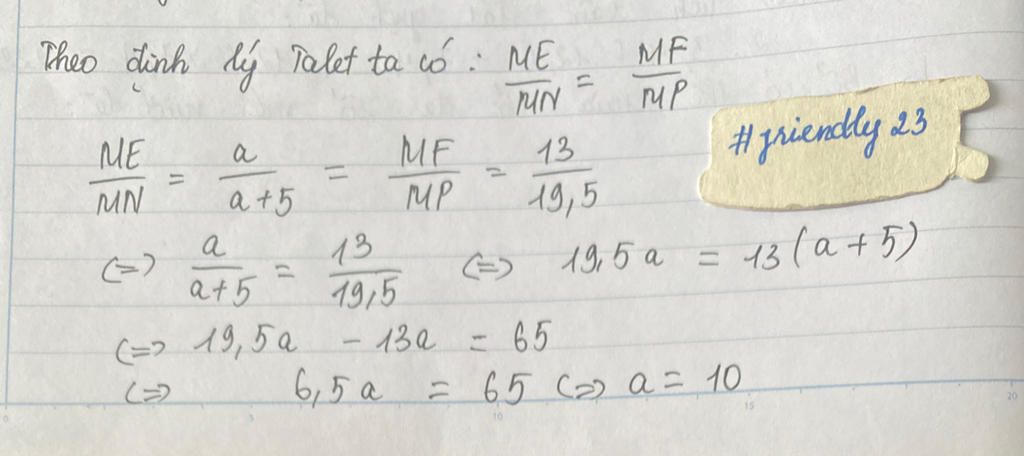 Theo định lý Talet ta có: ME/MN = MF/MP
ME/MN = a/a+5 = MF/MP = 13/19,5
#friendly 23
<=> a/a+5 = 13/19,5 <=> 19,5a = 13(a+5)
<=> 19,5a - 13a = 65
<=> 6,5a = 65 <=> a = 10
0 5 10 15 20